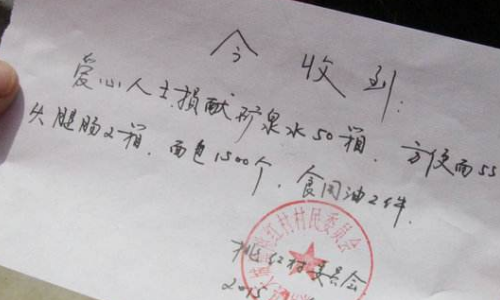 今收到:
爱心人士损献矿泉水50箱、方便面55
火腿肠2箱、面包1500个、食用油2件.
红村村民委员会
桃红村委员会
2015